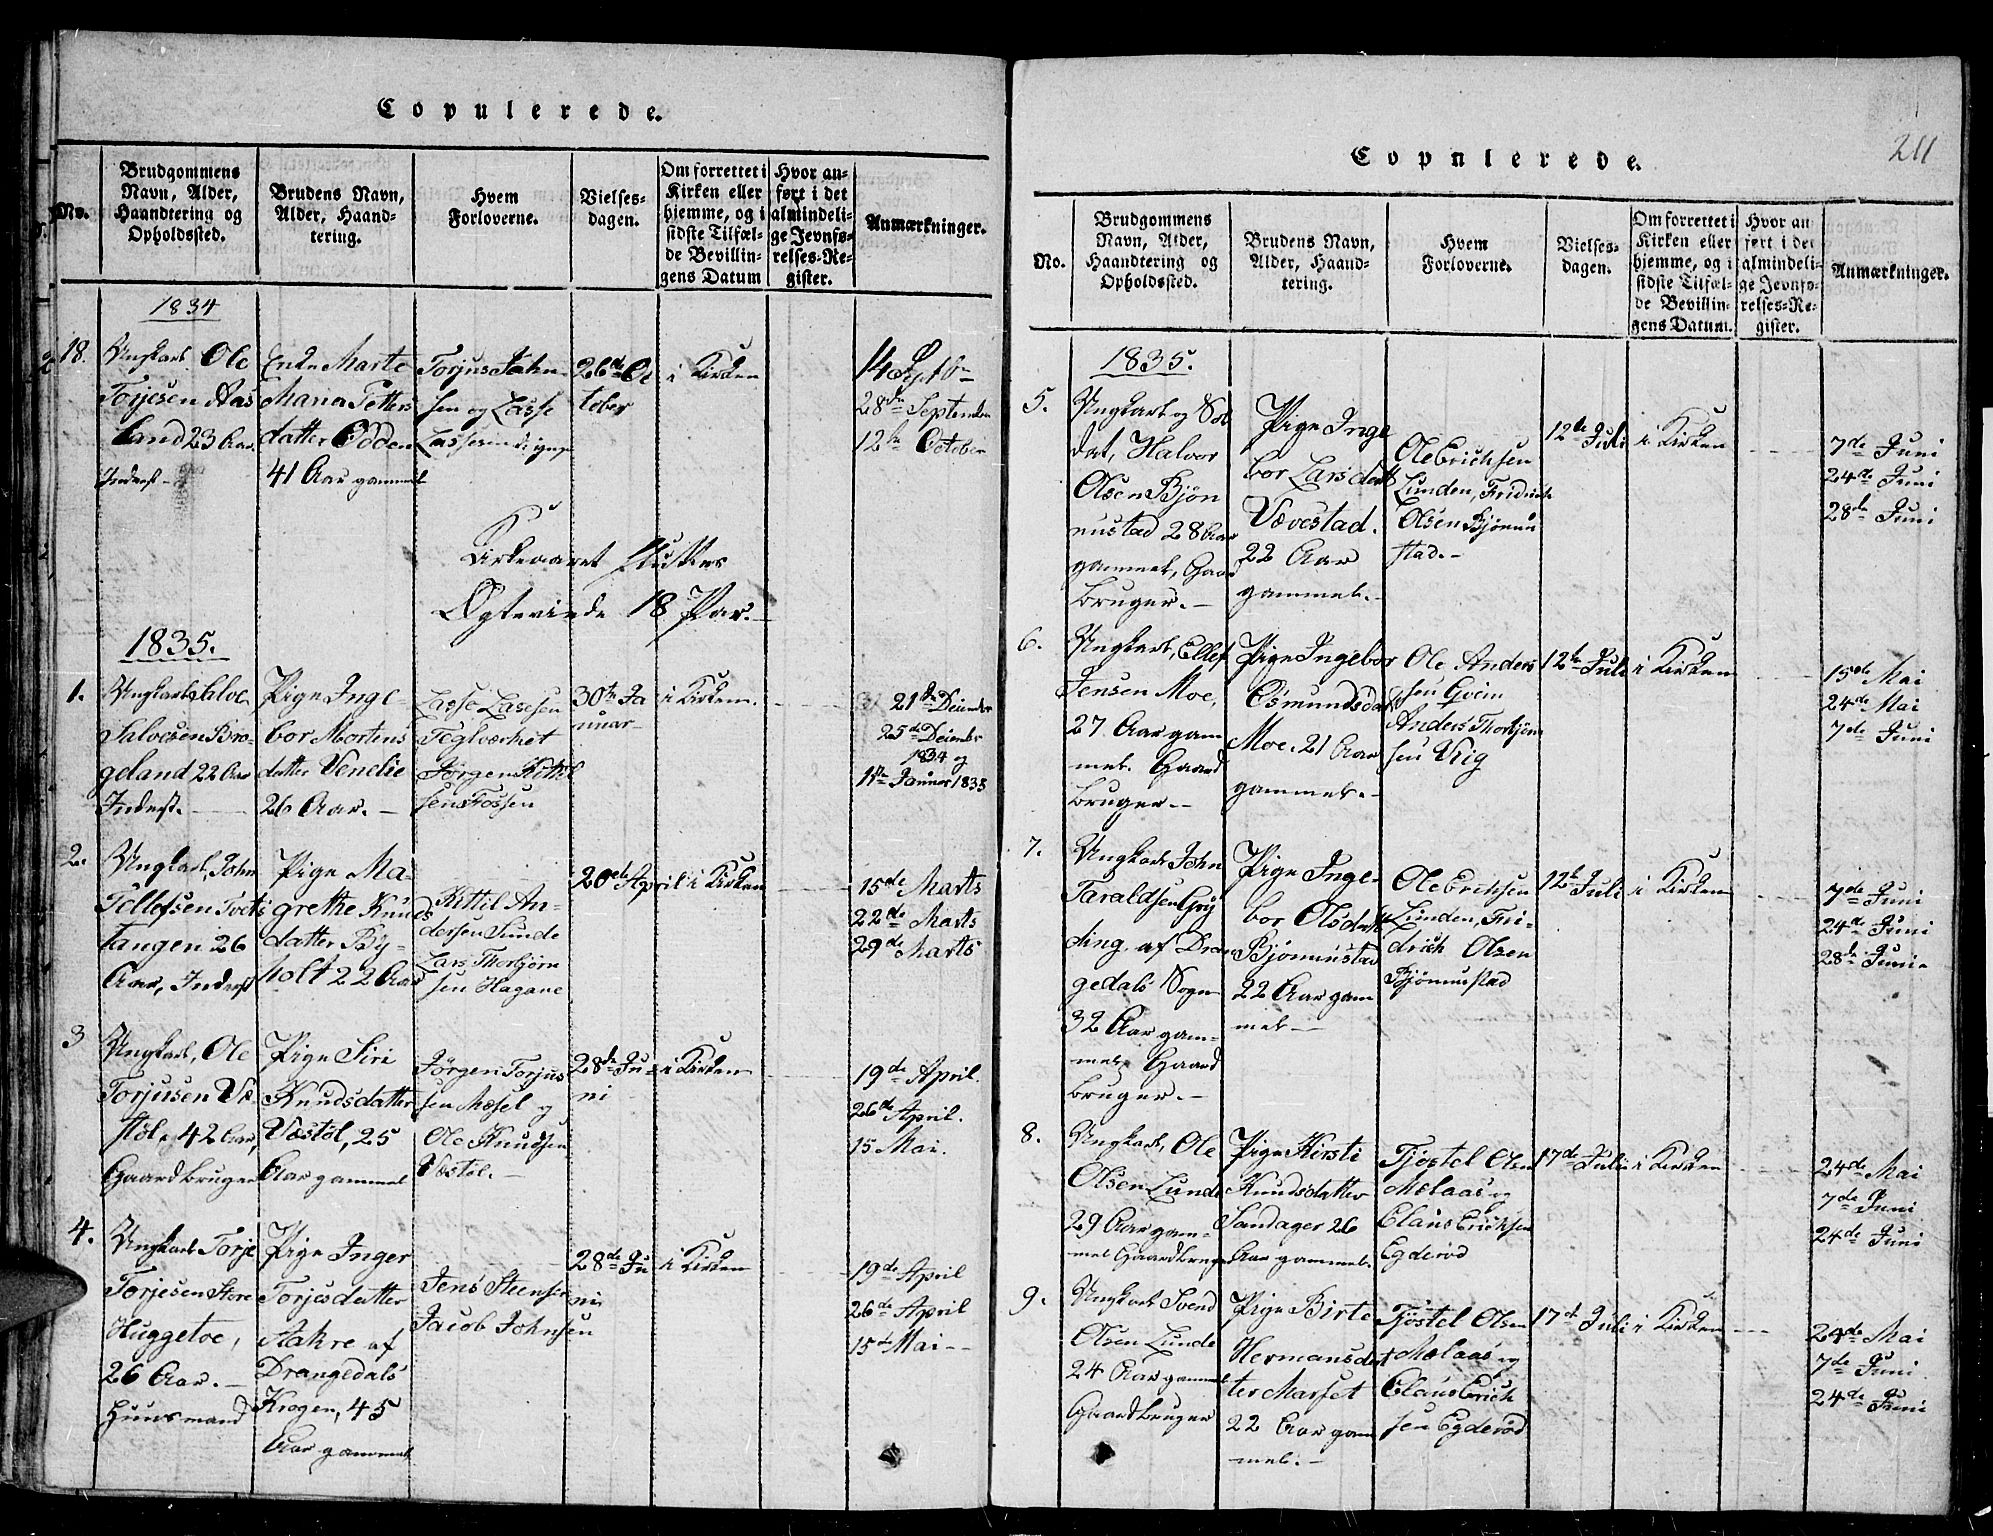 Copulerede.
No.
Brudgommens
Navn, Alder,
Haandtering og
Opholdssted.
Brudens Navn,
Alder, Haand-
tering.
Hvem
Forloverne.
Vielses-
dagen.
Om forrettet i
Kirken eller
hjemme, og i
sidste Tilfæl-
de Bevillin-
gens Datum
Hvor an-
ført i det
almindeli-
ge Jevnfø-
relses-Re-
gister.
Anmærkninger.
1834
18.
Ungkarl Ole
Torjesen Aas
land 23 Aar
Inderst
Enke Marte
Maria Petters
datter Odden
41 Aar gammel
Torjus John
sen og Lasse
Lassesen
26de Oc
tober
i Kirken
14 Septbr
28de September
12te October
Kirkeaaret sluttes
Ægteviede 18 Par.
1835.
1.
Ungkarl
Salvesen Bro-
geland 22 Aar
Inderst.
Pige Inge-
bor Mortens
datter Venelie
26 Aar.
Lasse Lassesen
Teglværket
Jørgen Kittil
sen Fossen
30te Ja
nuar
i Kirken.
21de Decembr
25de Decembr
1834 og
11te Januar 1835
2.
Ungkarl, John
Tellefsen Tveit
tangen 26
Aar, Inderst
Pige Ma-
grethe Knuds
datter By-
holt 22 Aar
Kittil An-
dersen Sunde
Lars Thorbjørn
sen Hagane
20de April
i Kirken
15de Marts
22de Marts
29de Marts
3
Ungkarl, Ole
Torjusen Væ-
støl, 42 Aar,
Gaardbruger
Pige Siri
Knudsdatter
Væstøl, 25
Aar gammel
Jørgen Torjus
sen Mæsel og
Ole Knudsen
Væstøl.
28de Ju-
ni
i Kirken
19de April.
26de April.
15 Mai.
4.
Ungkarl Torje
Torjesen Store
Huggetoe,
26 Aar.
Huusmand
Pige Inger
Torjesdatter
Aakre af
Drangedals
Krogen, 45
Aar gammel
Jens Steensen
Jacob Johnsen
28de Ju
ni
i Kirken
19de April
26de April
15de Mai
Copulerede.
211
No.
Brudgommens
Navn, Alder,
Haandtering og
Opholdssted.
Brudens Navn,
Alder, Haand-
tering.
Hvem
Forloverne.
Vielses-
dagen.
Om forrettet i
Kirken eller
hjemme, og i
sidste Tilfæl-
de Bevillin-
gens Datum.
Hvor an
ført i det
almindeli-
ge Jevnfø-
relses-Re-
gister.
Anmærkninger.
1835.
5.
Ungkarl og Sol
dat, Halvor
Olsen Bjøn
nustad 28 Aar
gammel, Gaard
bruger.
Pige Inge
bor Larsdatt
Vævestad.
22 Aar
gammel.
Ole Erichsen
Lunden, Fridrich
Olsen Bjønnu
stad.
12te Juli
i Kirken
7de Juni
24de Juni
28de Juni
6.
Ungkarl, Ellef
Jensen Moe,
27 Aar gam
mel. Gaard
bruger.
Pige Ingebor
Osmundsdat
Moe. 21 Aar
gammel.
Ole Anders
sen
Anders Thorbjørn
sen Vrig
12te Juli
i Kirken
15de Mai
24de Mai
7de Juni
7.
Ungkarl John
Taraldsen Gry
ding af Dran
gedals Sogn
32 Aar gam-
mel Gaard
bruger.
Pige Inge-
bor Olsdatt
Bjønnustad
22 Aar gam
mel
Ole Erichsen
Lunden, Fri-
drich Olsen
Bjønnustad
12te Juli
i Kirken
7de Juni
24de Juni
28de Juni
8.
Ungkarl, Ole
Olsen Lunde
29 Aar gam-
mel Gaardbruger
Pige Kirsti
Knudsdatter
Sandager 26
Aar gammel.
Tjøstel Olsen
Molaas og
Claus Erichsen
Egderød
17de Juli
i Kirken
24de Mai
7de Juni
24de Juni
9.
Ungkarl Svend
Olsen Lunde
24 Aar gammel
Gaardbruger
Pige Birte
Hermansdat
ter Marset
22 Aar gam
mel.
Tjøstel Olsen
Molaas og
Claus Erich
sen Egderød
17de Juli
i Kirken
24de Mai
7de Juni
24de Juni